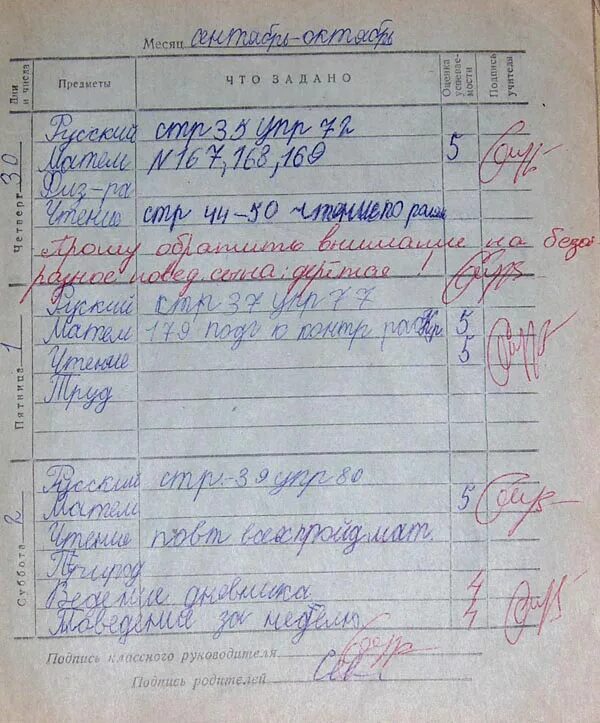 Месяц сентябрь-октябрь
Дни и числа
Предметы
ЧТО ЗАДАНО
Оценка успеваемости
Подпись учителя
Четверг 30
Русский стр 35 упр 72
Матем N 167, 168, 169 5
Физ-ра
Чтение стр 44-50 чтение по ролям
Прошу обратить внимание на безоб
разное повед. сына: дерётся!
Пятница 1
Руский стр 37 упр 77
Матем 179 подг к контр раб Кр 5
Чтение 5
Труд
Суббота 2
Русский стр-39 упр 80
Матем 5
Чтение повт всех пройд мат.
Природ
Ведение дневника 4
Поведение за неделю 4
Подпись классного руководителя
Подпись родителей